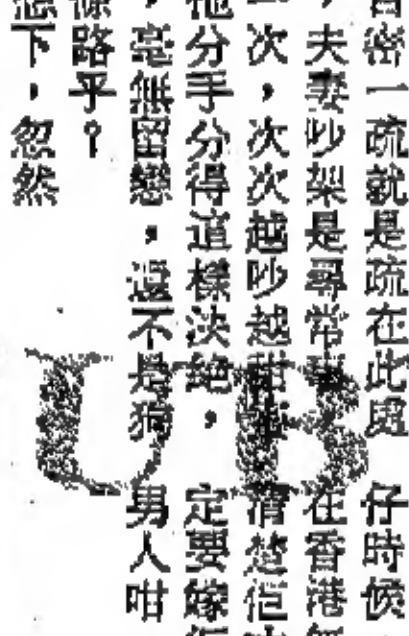 密一疏就是疏在此處 仔時候
夫妻吵架是尋常 在香港
次，次次越吵越甜 清楚佢
他分手分得這樣決絕， 定要嫁
，毫無留戀，還不是狗 男人咁
條路乎？
下，忽然